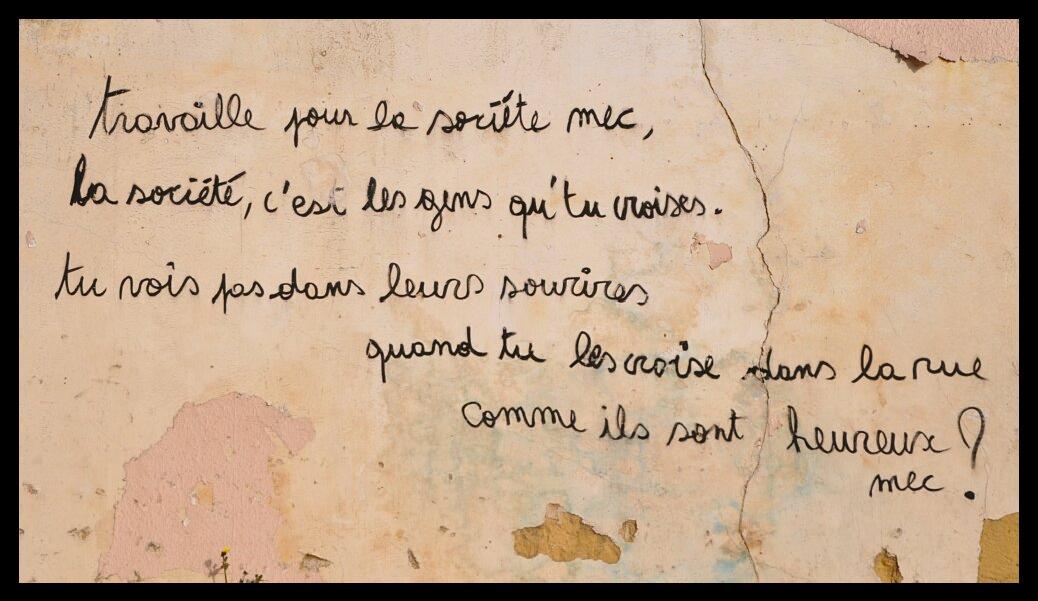 travaille pour la sociéte mec,
la société, c'est les gens qu'tu croises.
tu vois pas dans leurs sourires
quand tu les croise dans la rue
comme ils sont heureux ?
mec.